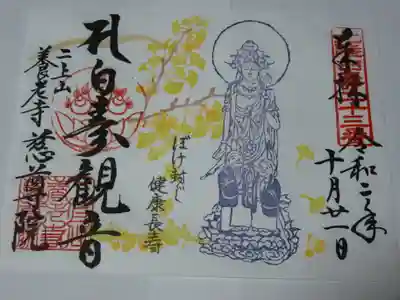 奉拝
令和二年
十月廿一日
十三番
ぼけ封じ
健康長寿
観音
二上山
養老寺 慈尊院